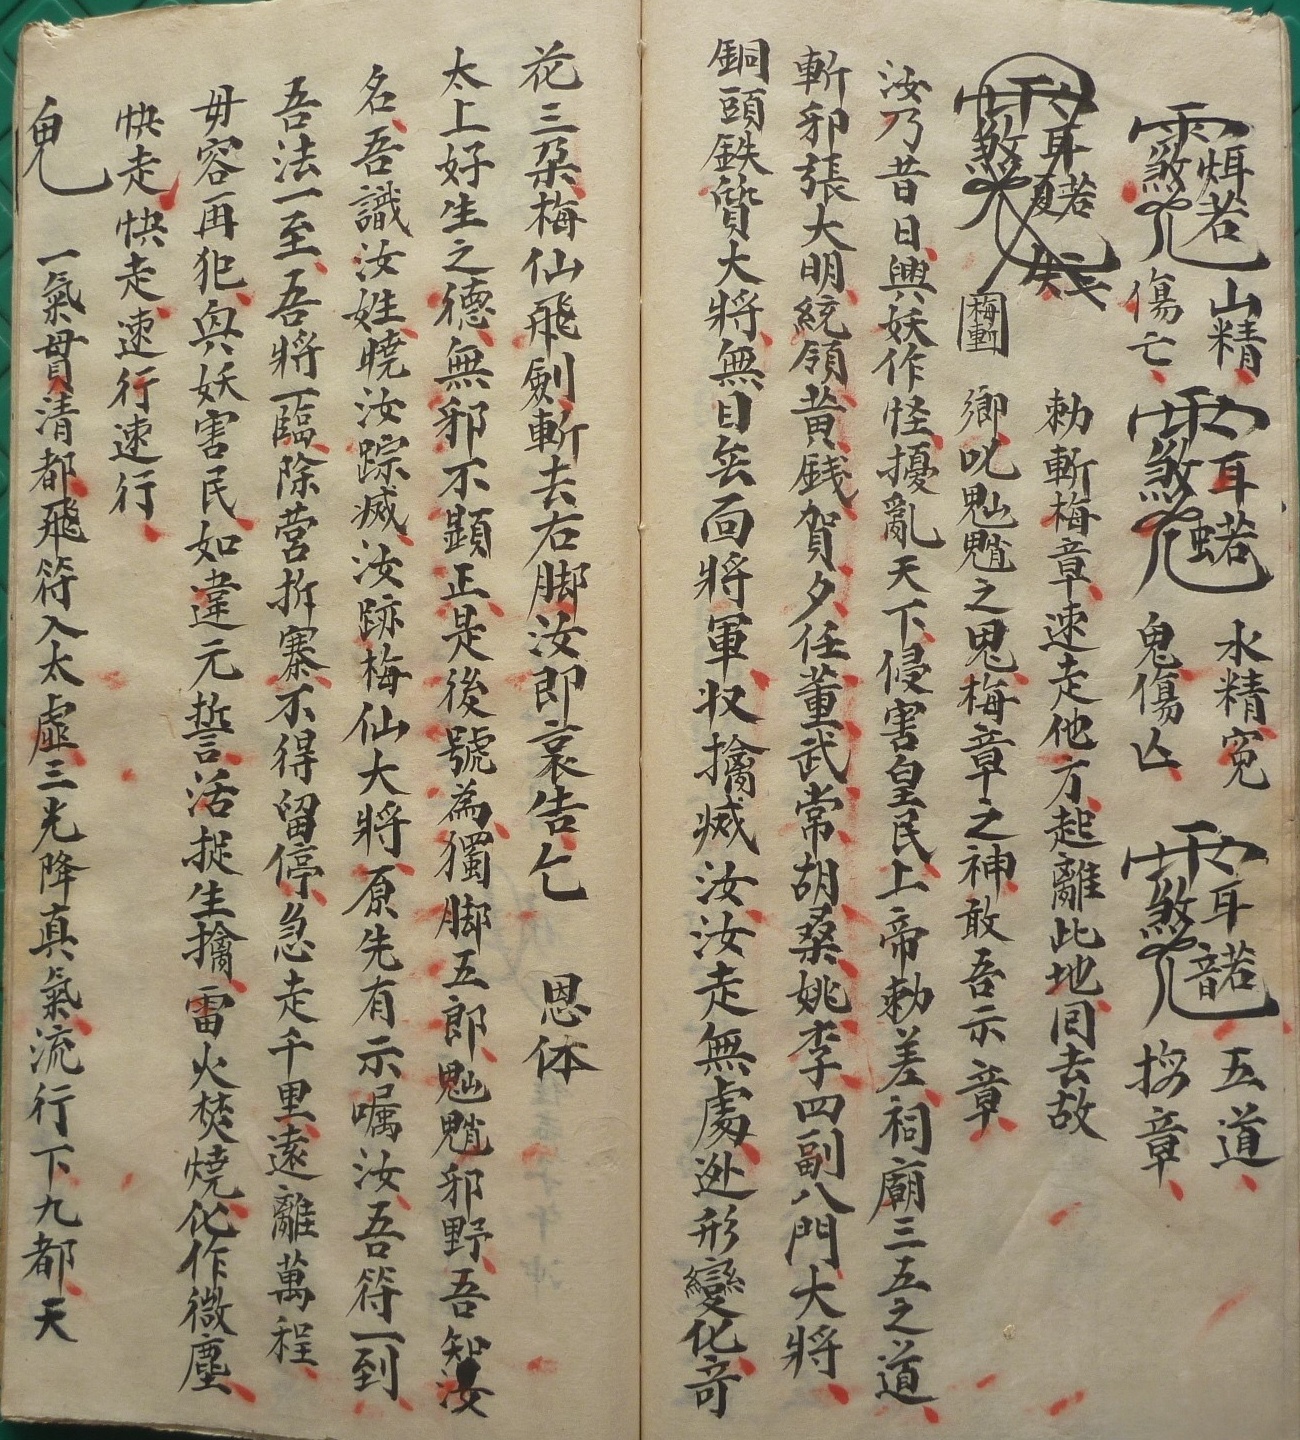 山精 傷亡 水精 鬼傷亾 五道 按章
勅斬梅章速走他方起離此地囘去故
鄉叱魈之鬼梅章之神敢吾示章
汝乃昔日與妖作怪擾亂天下侵害皇民上帝勅差祠廟三五之道
斬邪張大明統領黃錢賀夕任董武常胡桑姚李四副八門大將
銅頭鉄質大將無目無面將軍収擒滅汝汝走無處迯形變化奇
花三朶梅仙飛劍斬去右脚汝即哀告乞 恩体
太上好生之德無邪不顯正是後號為獨脚五郎魈邪野吾知汝
名吾識汝姓曉汝踪滅汝跡梅仙大將原先有示囑汝吾符一到
吾法一至吾將一臨除营拆寨不得留停急走千里遠離萬程
毋容再犯與妖害民如違元誓活捉生擒雷火焚燒化作微塵
快走快走速行速行
一氣貫清都飛符入太虛三光降真氣流行下九都天